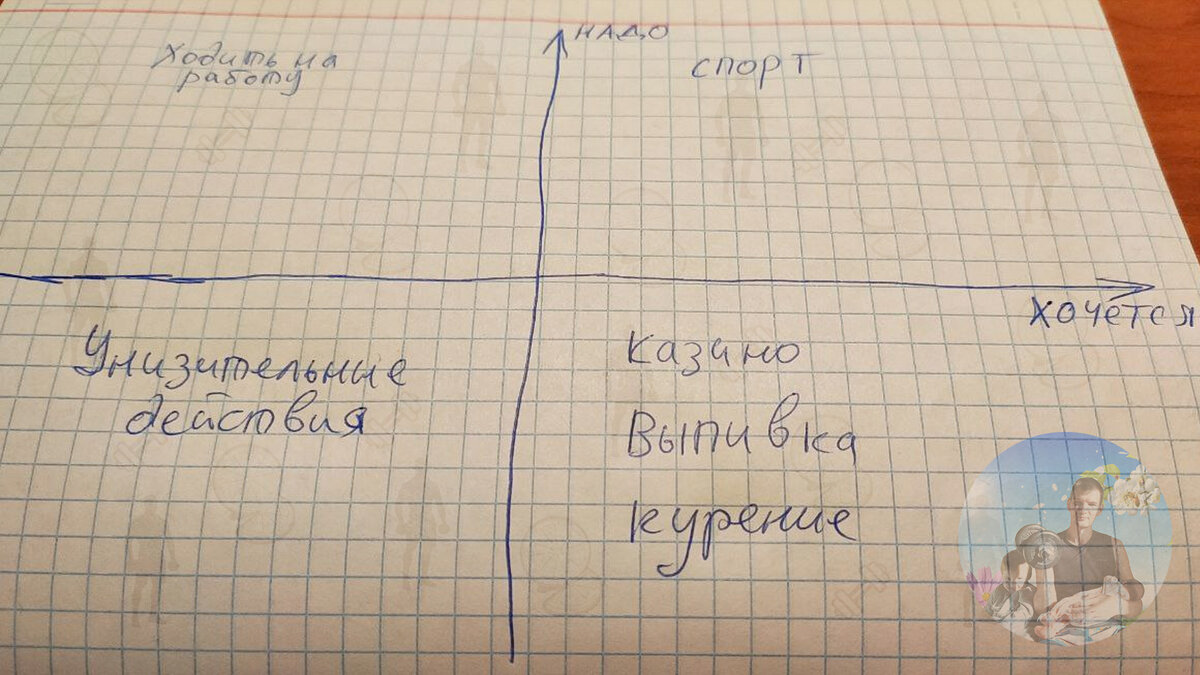 НАДО
Ходить на
работу
спорт
Хочется
Унизительные
действия
казино
Выпивка
курение